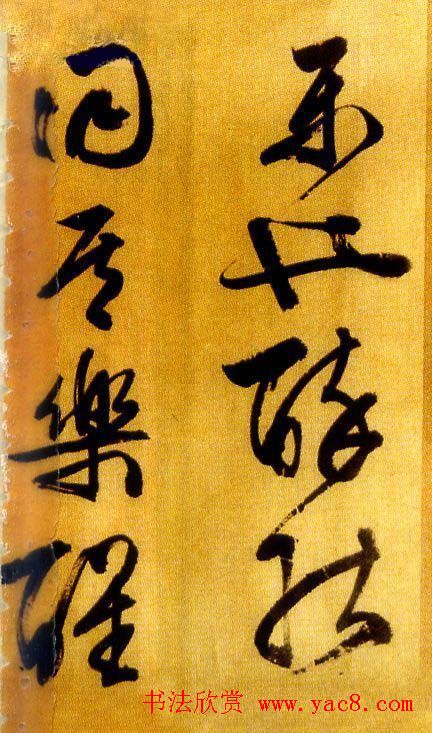 乐也醉能
同其樂醒
书法欣赏 www.yac8.com